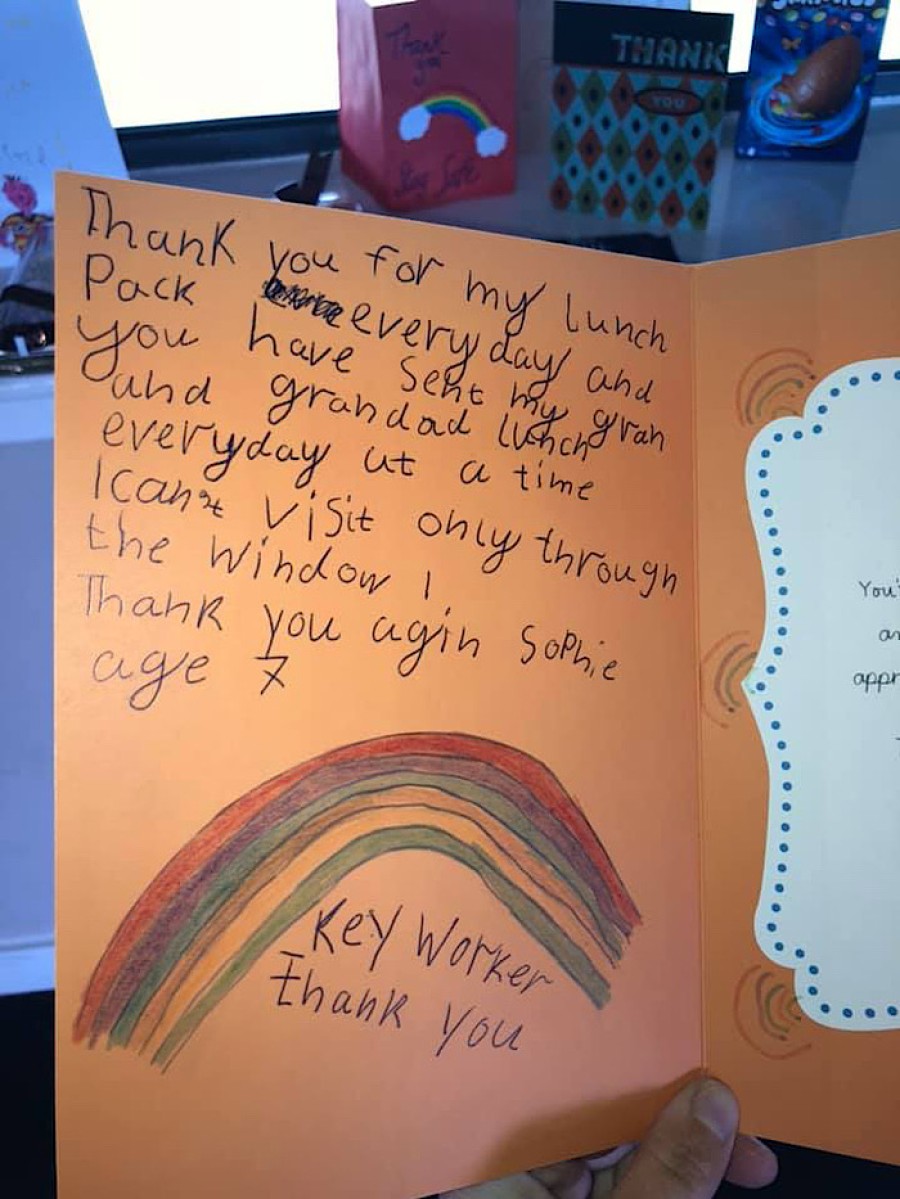 Thank you for my lunch
Pack everyday and
you have sent my gran
and grandad lunch
everyday at a time
I can't visit only through
the window
Thank you agin Sophie
age 7
Key Worker
thank you
Thank
you
Stay Safe
THANK
YOU
You'
an
appr